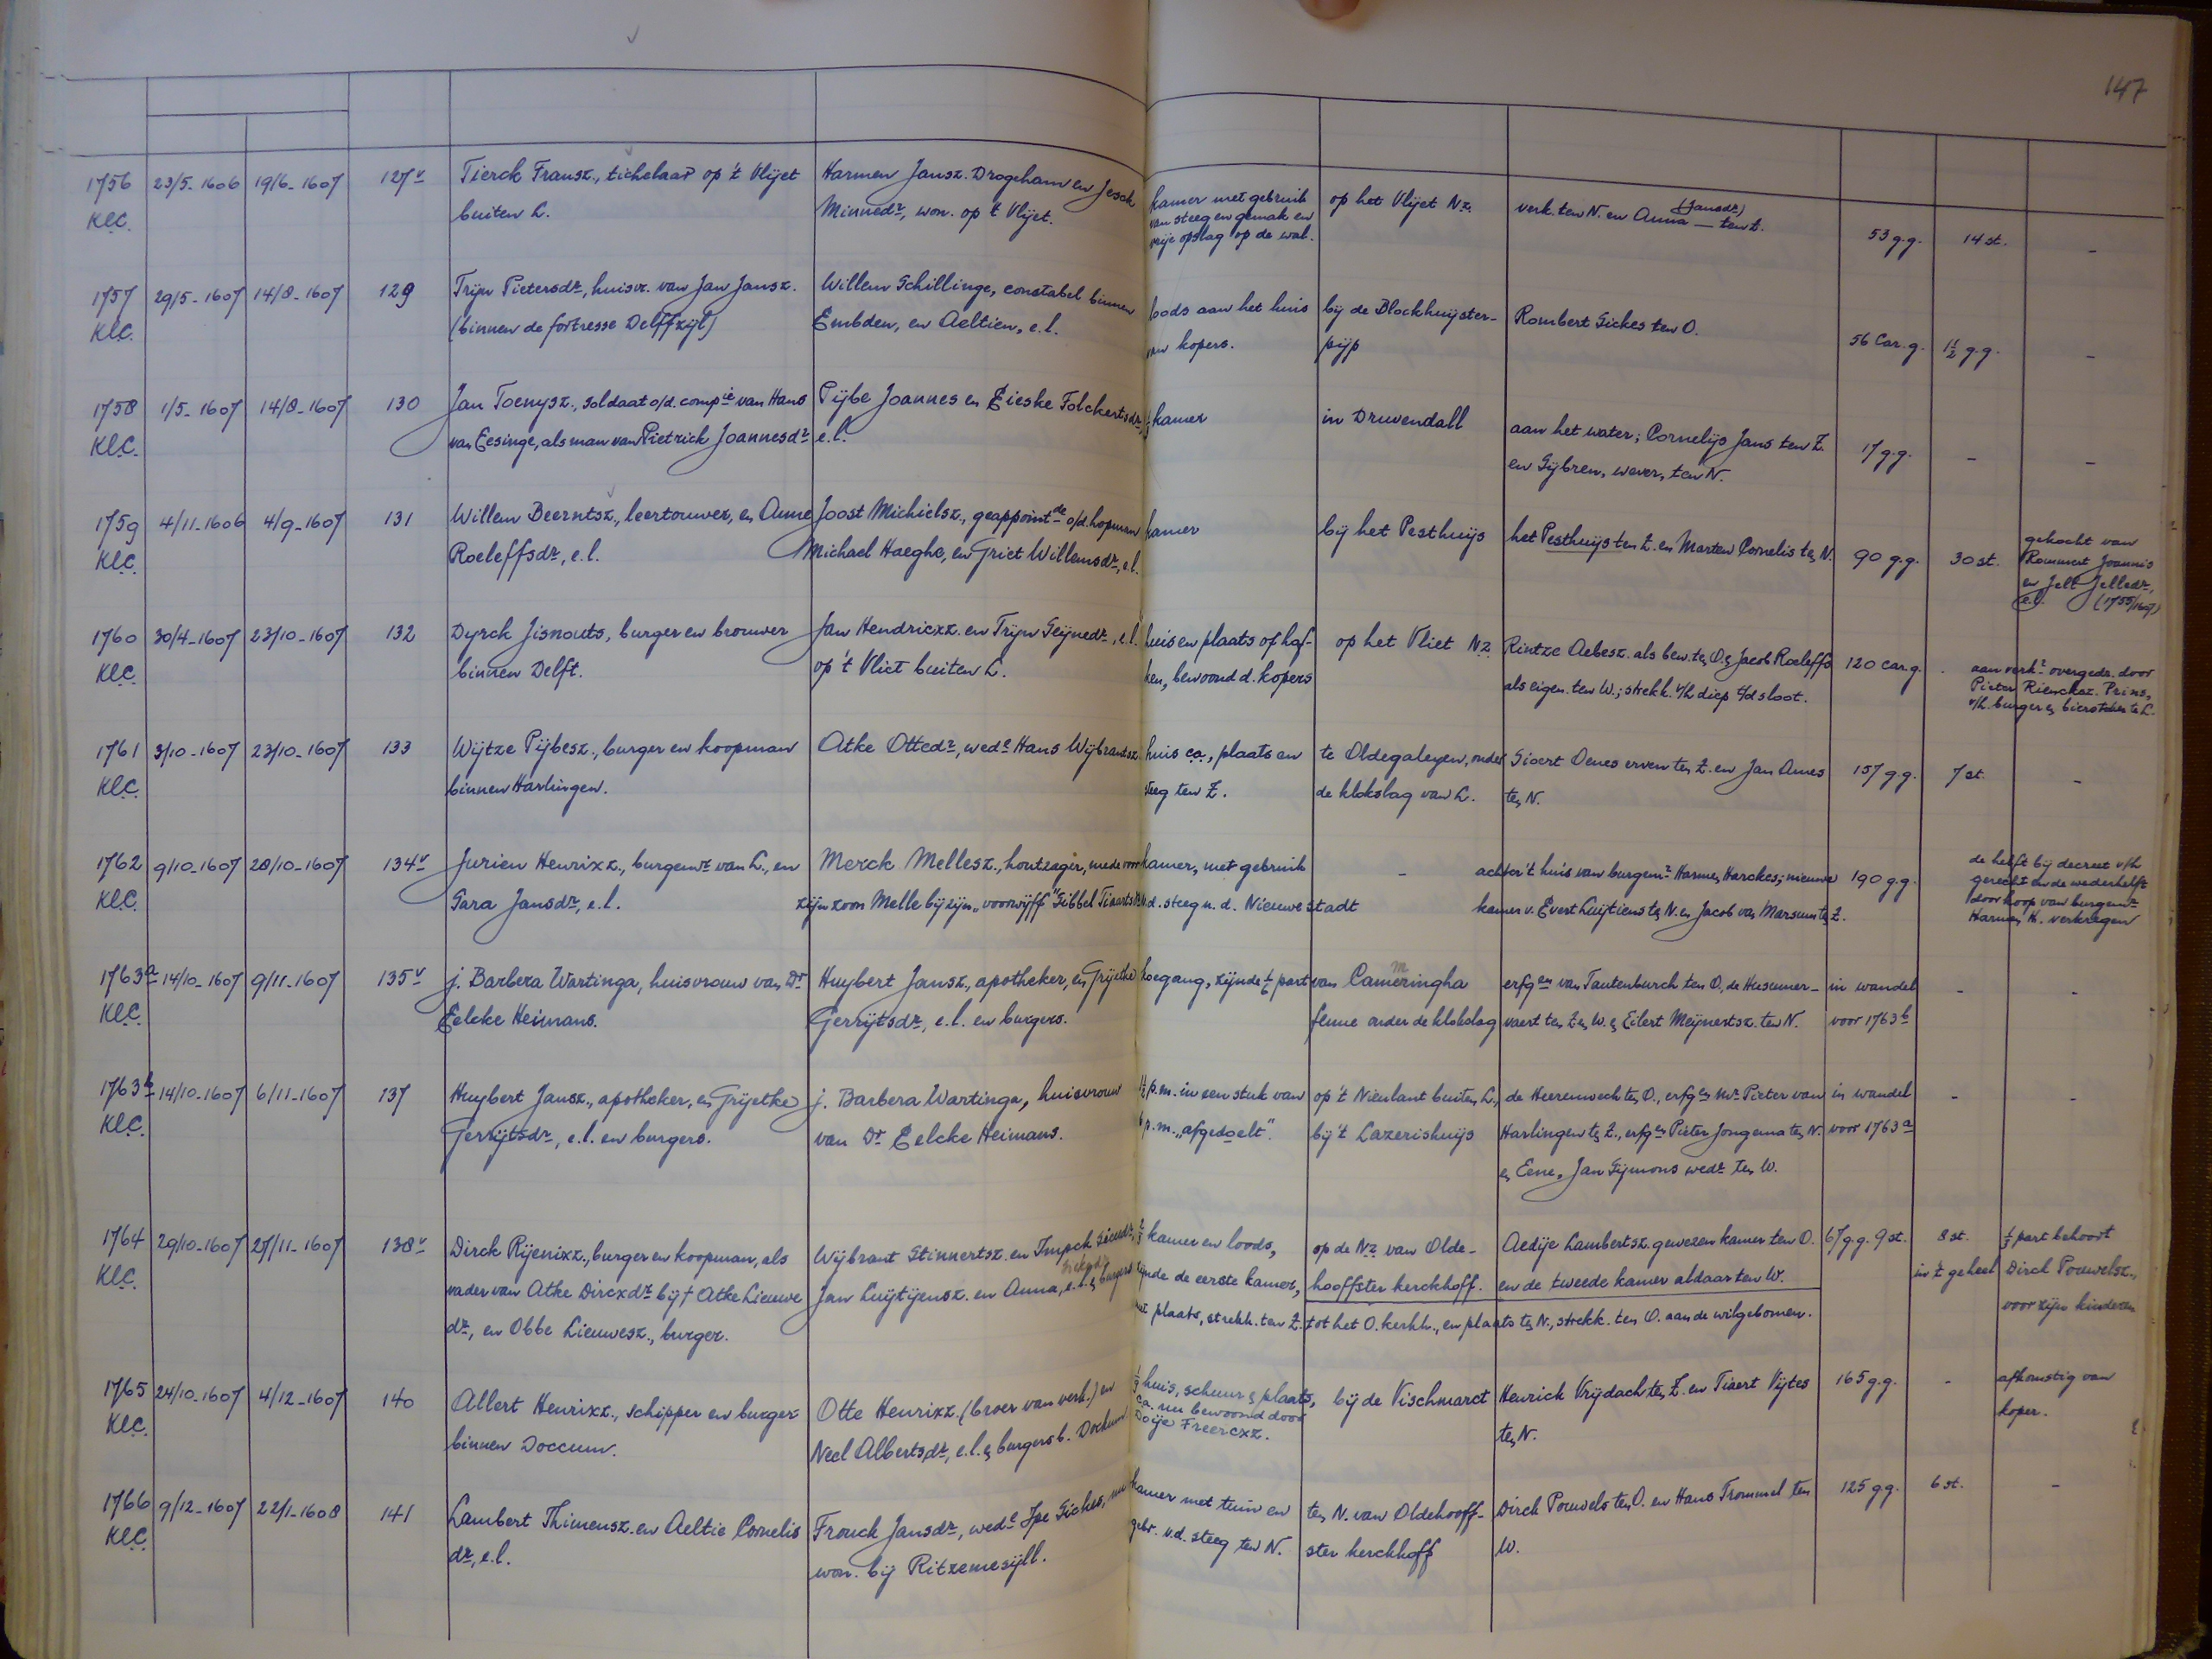 147
1756 23/5-1606 19/6-1607 127v Tierck Fransz., tichelaar op 't Vlijet Harmen Jansz. Drogeham en Jesck kamer met gebruik op het Vlijet Nz. verk. ten N. en Anna (Jansdr) ten Z. 53 g.g. 14 st. -
KlC. buiten L. Minnedr, won. op 't Vlijet. van steeg en gemak en
vrije opslag op de wal.
1757 29/5-1607 14/8-1607 129 Trijn Pietersdr, huisvr. van Jan Jansz. Willem Schillinge, constabel binnen loods aan het huis bij de Blockhuijster- Rombert Sickes ten O. 56 Car. g. 1½ g.g. -
KlC. (binnen de fortresse Delffzijl) Embden, en Aeltien, e.l. van kopers. pijp
1758 1/5-1607 14/8-1607 130 Jan Toenysz., soldaat o/d. compie van Hans Pijbe Joannes en Eieske Folckertsdr, kamer in Druvendall aan het water; Cornelijs Jans ten Z. 17 g.g. - -
KlC. van Eesinge, als man van Pietrick Joannesdr e.l. en Sijbren, wever, ten N.
1759 4/11-1606 4/9-1607 131 Willem Beerntsz., leertouwer, en Anne Joost Michielsz., geappointde o/d. hopman kamer bij het Pesthuijs het Pesthuijs ten Z. en Marten Cornelis ten N. 90 g.g. 30 st. gekocht van
KlC. Roeleffsdr, e.l. Michael Haeghe, en Griet Willemsdr, e.l. Rommert Joannis
en Jelt Jelledr,
e.l. (1755/1607)
1760 30/4-1607 23/10-1607 132 Dyrck Jisnouts, burger en brouwer Jan Hendricxz. en Trijn Seijnedr, e.l. huis en plaats of hof- op het Vliet Nz. Rintze Aebesz. als bew. ten O. en Jacob Roeleffs 120 car. g. . aan verkr overgedr. door
KlC. binnen Delft. op 't Vliet buiten L. ken, bewoond d. kopers als eigen. ten W.; strekk. v/h diep t/d sloot. Pieter Rienckxz. Prins,
v/h. burger en biersteker te L.
1761 3/10-1607 23/10-1607 133 Wijtze Pijbesz., burger en koopman Atke Ottedr, wede Hans Wijbrantsz. huis ca., plaats en te Oldegaleyen, onder Sioert Oenes erven ten Z. en Jan Ames 157 g.g. 7 st. -
KlC. binnen Harlingen. steeg ten Z. de klokslag van L. ten N.
1762 9/10-1607 28/10-1607 134v Jurien Henrixz., burgemr van L., en Merck Mellesz., houtzager, mede voor kamer, met gebruik - achter 't huis van burgemr Harmen Harckes; nieuwe 190 g.g. de helft bij decreet v/h
KlC. Sara Jansdr, e.l. zijn zoon Melle bij zijn "voorwijff" Sibbel Tiaartsdr v.d. steeg n. d. Nieuwe stadt kamer v. Evert Luijtiens ten N. en Jacob van Marsum ten Z. gerecht en de wederhelft
door koop van burgemr
Harmen H. verkregen
1763a 14/10-1607 9/11-1607 135v j. Barbera Wartinga, huisvrouw van Dr Huybert Jansz., apotheker, en Grijetke toegang, zijnde 1/6 part van Cameringha erfgen van Tautenburch ten O, de Husumer- in wandel - -
KlC. Eelcke Heimans. Gerrijtsdr, e.l. en burgers. fenne onder de klokslag vaert ten Z en W. en Eilert Meijnertsz. ten N. voor 1763b
1763b 14/10-1607 6/11-1607 137 Huybert Jansz., apotheker, en Grijetke j. Barbera Wartinga, huisvrouw p.m. in een stuk van op 't Nieulant buiten L., de Heerenwech ten O., erfgen Mr Pieter van in wandel - -
KlC. Gerrijtsdr, e.l. en burgers. van Dr Eelcke Heimans. p.m. "afgedoelt". bij 't Lazerishuijs Harlingen ten Z., erfgen Pieter Jongema ten N. voor 1763a
en Eene, Jan Sijmons wedr ten W.
1764 29/10-1607 27/11-1607 138v Dirck Rijenixz., burger en koopman, als Wijbrant Stinnertsz. en Impck Sieuwdr, kamer en loods, op de Nz. van Olde- Aedije Lambertsz. gewezen kamer ten O. 67 g.g. 9 st. 8 st. 1/3 part behoort
KlC. vader van Atke Dircxdr bij † Atke Lieuwe Jan Luijtijensz. en Anna, e.l. en burgers zijnde de eerste kamer, hooffster kerckhoff. en de tweede kamer aldaar ten W. in 't geheel Dirck Pouwelsz.,
dr, en Obbe Lieuwesz., burger. met plaats, strekk. ten Z. tot het O. kerkh., en plaats ten N., strekk. ten O. aan de wilgebomen. voor zijn kinderen
1765 24/10-1607 4/12-1607 140 Allert Henrixz., schipper en burger Otte Henrixz. (broer van verk.) en huis, schuur en plaats, bij de Vischmarct Henrick Vrijdach ten Z. en Tiaert Vijtes 165 g.g. - afkomstig van
KlC. binnen Doccum. Neel Albertsdr, e.l. en burgers b. Dockum ca. nu bewoond door ten N. koper.
Doije Freercxz.
1766 9/12-1607 22/1-1608 141 Lambert Thimensz. en Aeltie Cornelis Frouck Jansdr, wede Jpe Sickes, nu kamer met tuin en ten N. van Oldehooff- Dirck Pouwels ten O. en Hans Trommel ten 125 g.g. 6 st. -
KlC. dr, e.l. won. bij Ritzemesijll. gebr. v.d. steeg ten N. ster kerckhoff W.